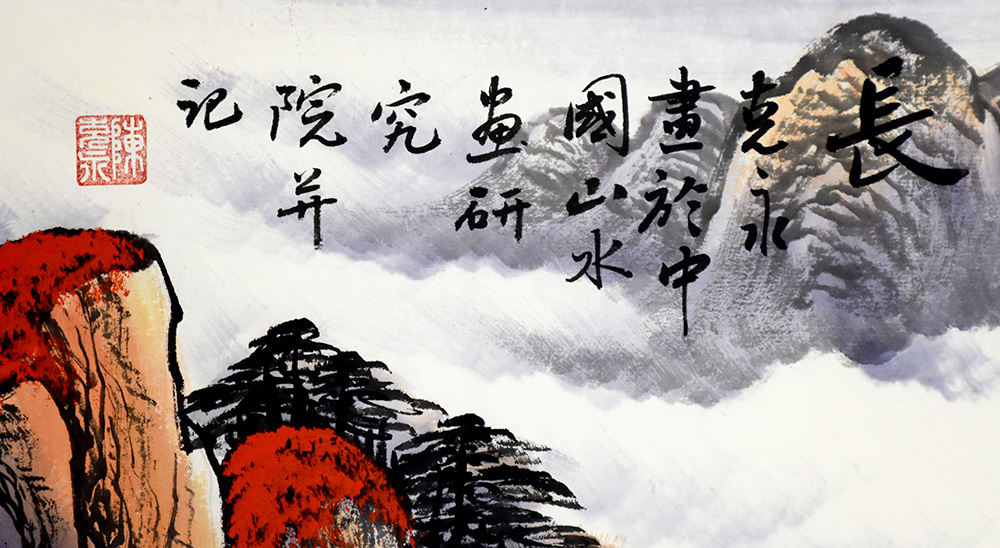 長
克永
畫於中
國山水
画研
究
院并
記
陳克永